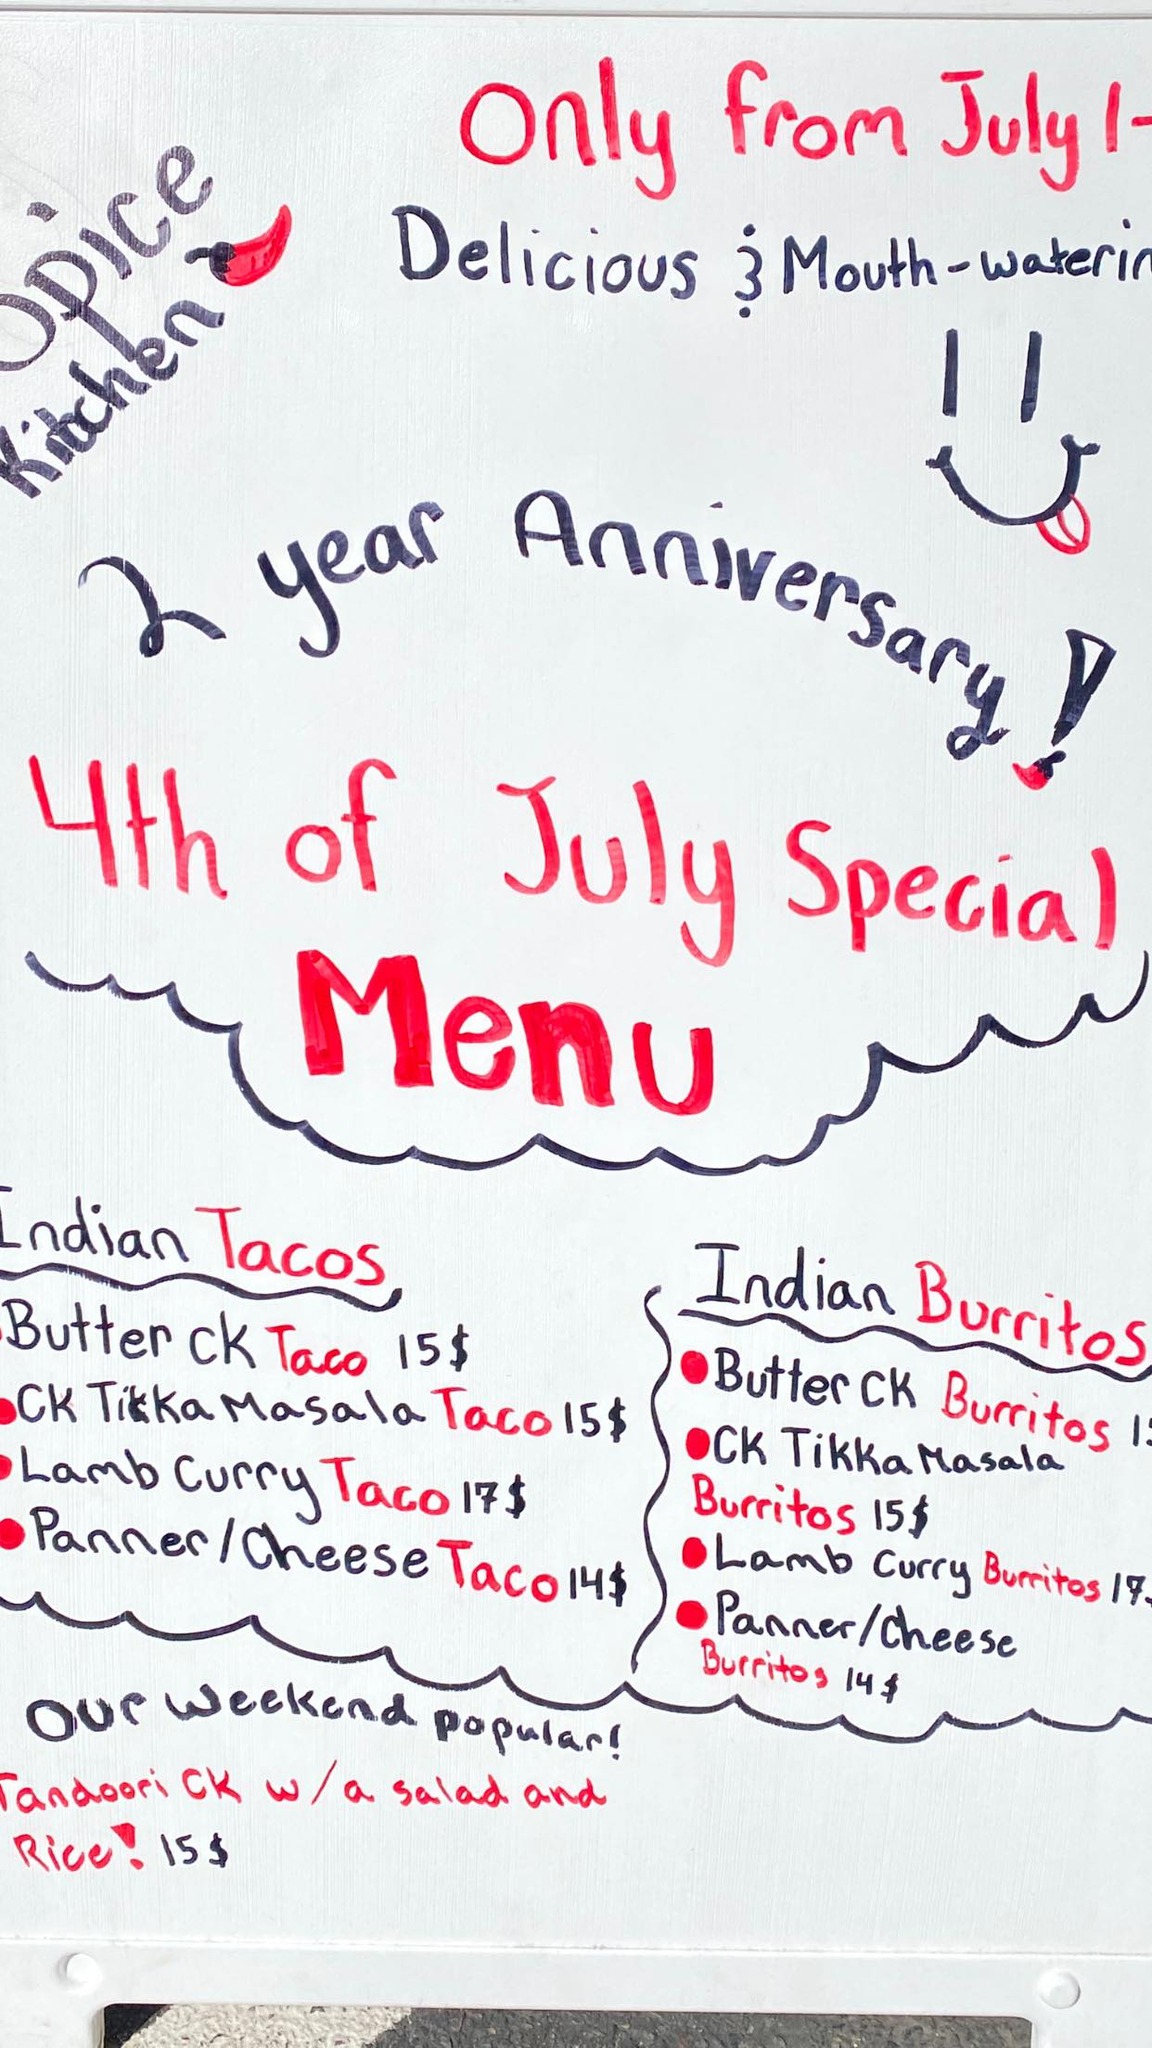 Only from July 1-
Delicious & Mouth-waterin
Spice
Kitchen
2 year Anniversary!
4th of July Special
Menu
Indian Tacos
Butter CK Taco 15$
CK Tikka Masala Taco 15$
Lamb Curry Taco 17$
Panner/Cheese Taco 14$
Indian Burritos
Butter CK Burritos 15
CK Tikka Masala
Burritos 15$
Lamb Curry Burritos 17$
Panner/Cheese
Burritos 14$
Our Weekend popular!
Tandoori CK w/a salad and
Rice! 15$